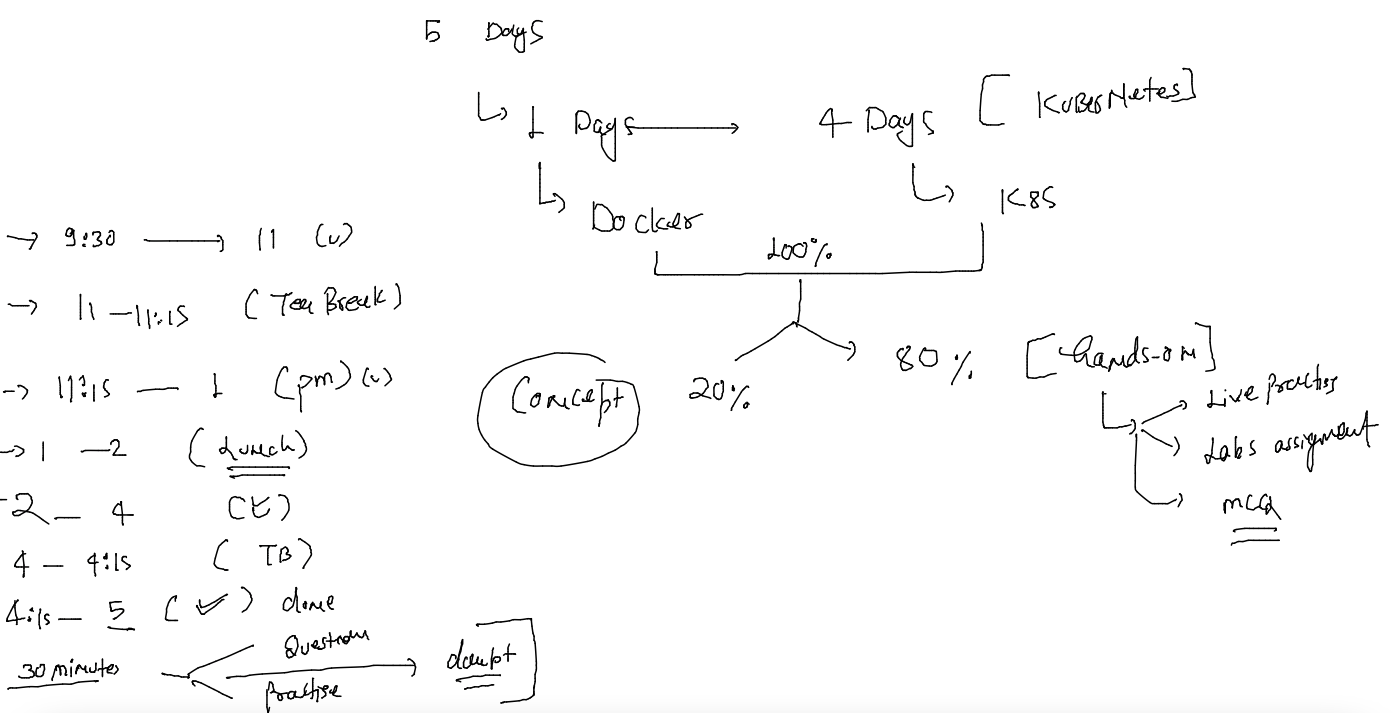 5 Days
1 Days → 4 Days [KUBERNetes]
Docker
K8S
100%
20%
80% [hands-on]
Concept
Live Practise
Labs assigment
MCQ
→ 9:30 → 11 (✓)
→ 11 – 11:15 (Tea Break)
→ 11:15 — 1 (pm) (✓)
→ 1 – 2 (Lunch)
2 – 4 (✓)
4 – 4:15 (TB)
4:15 – 5 (✓) done
30 minutes
Questions
Practise
doupt